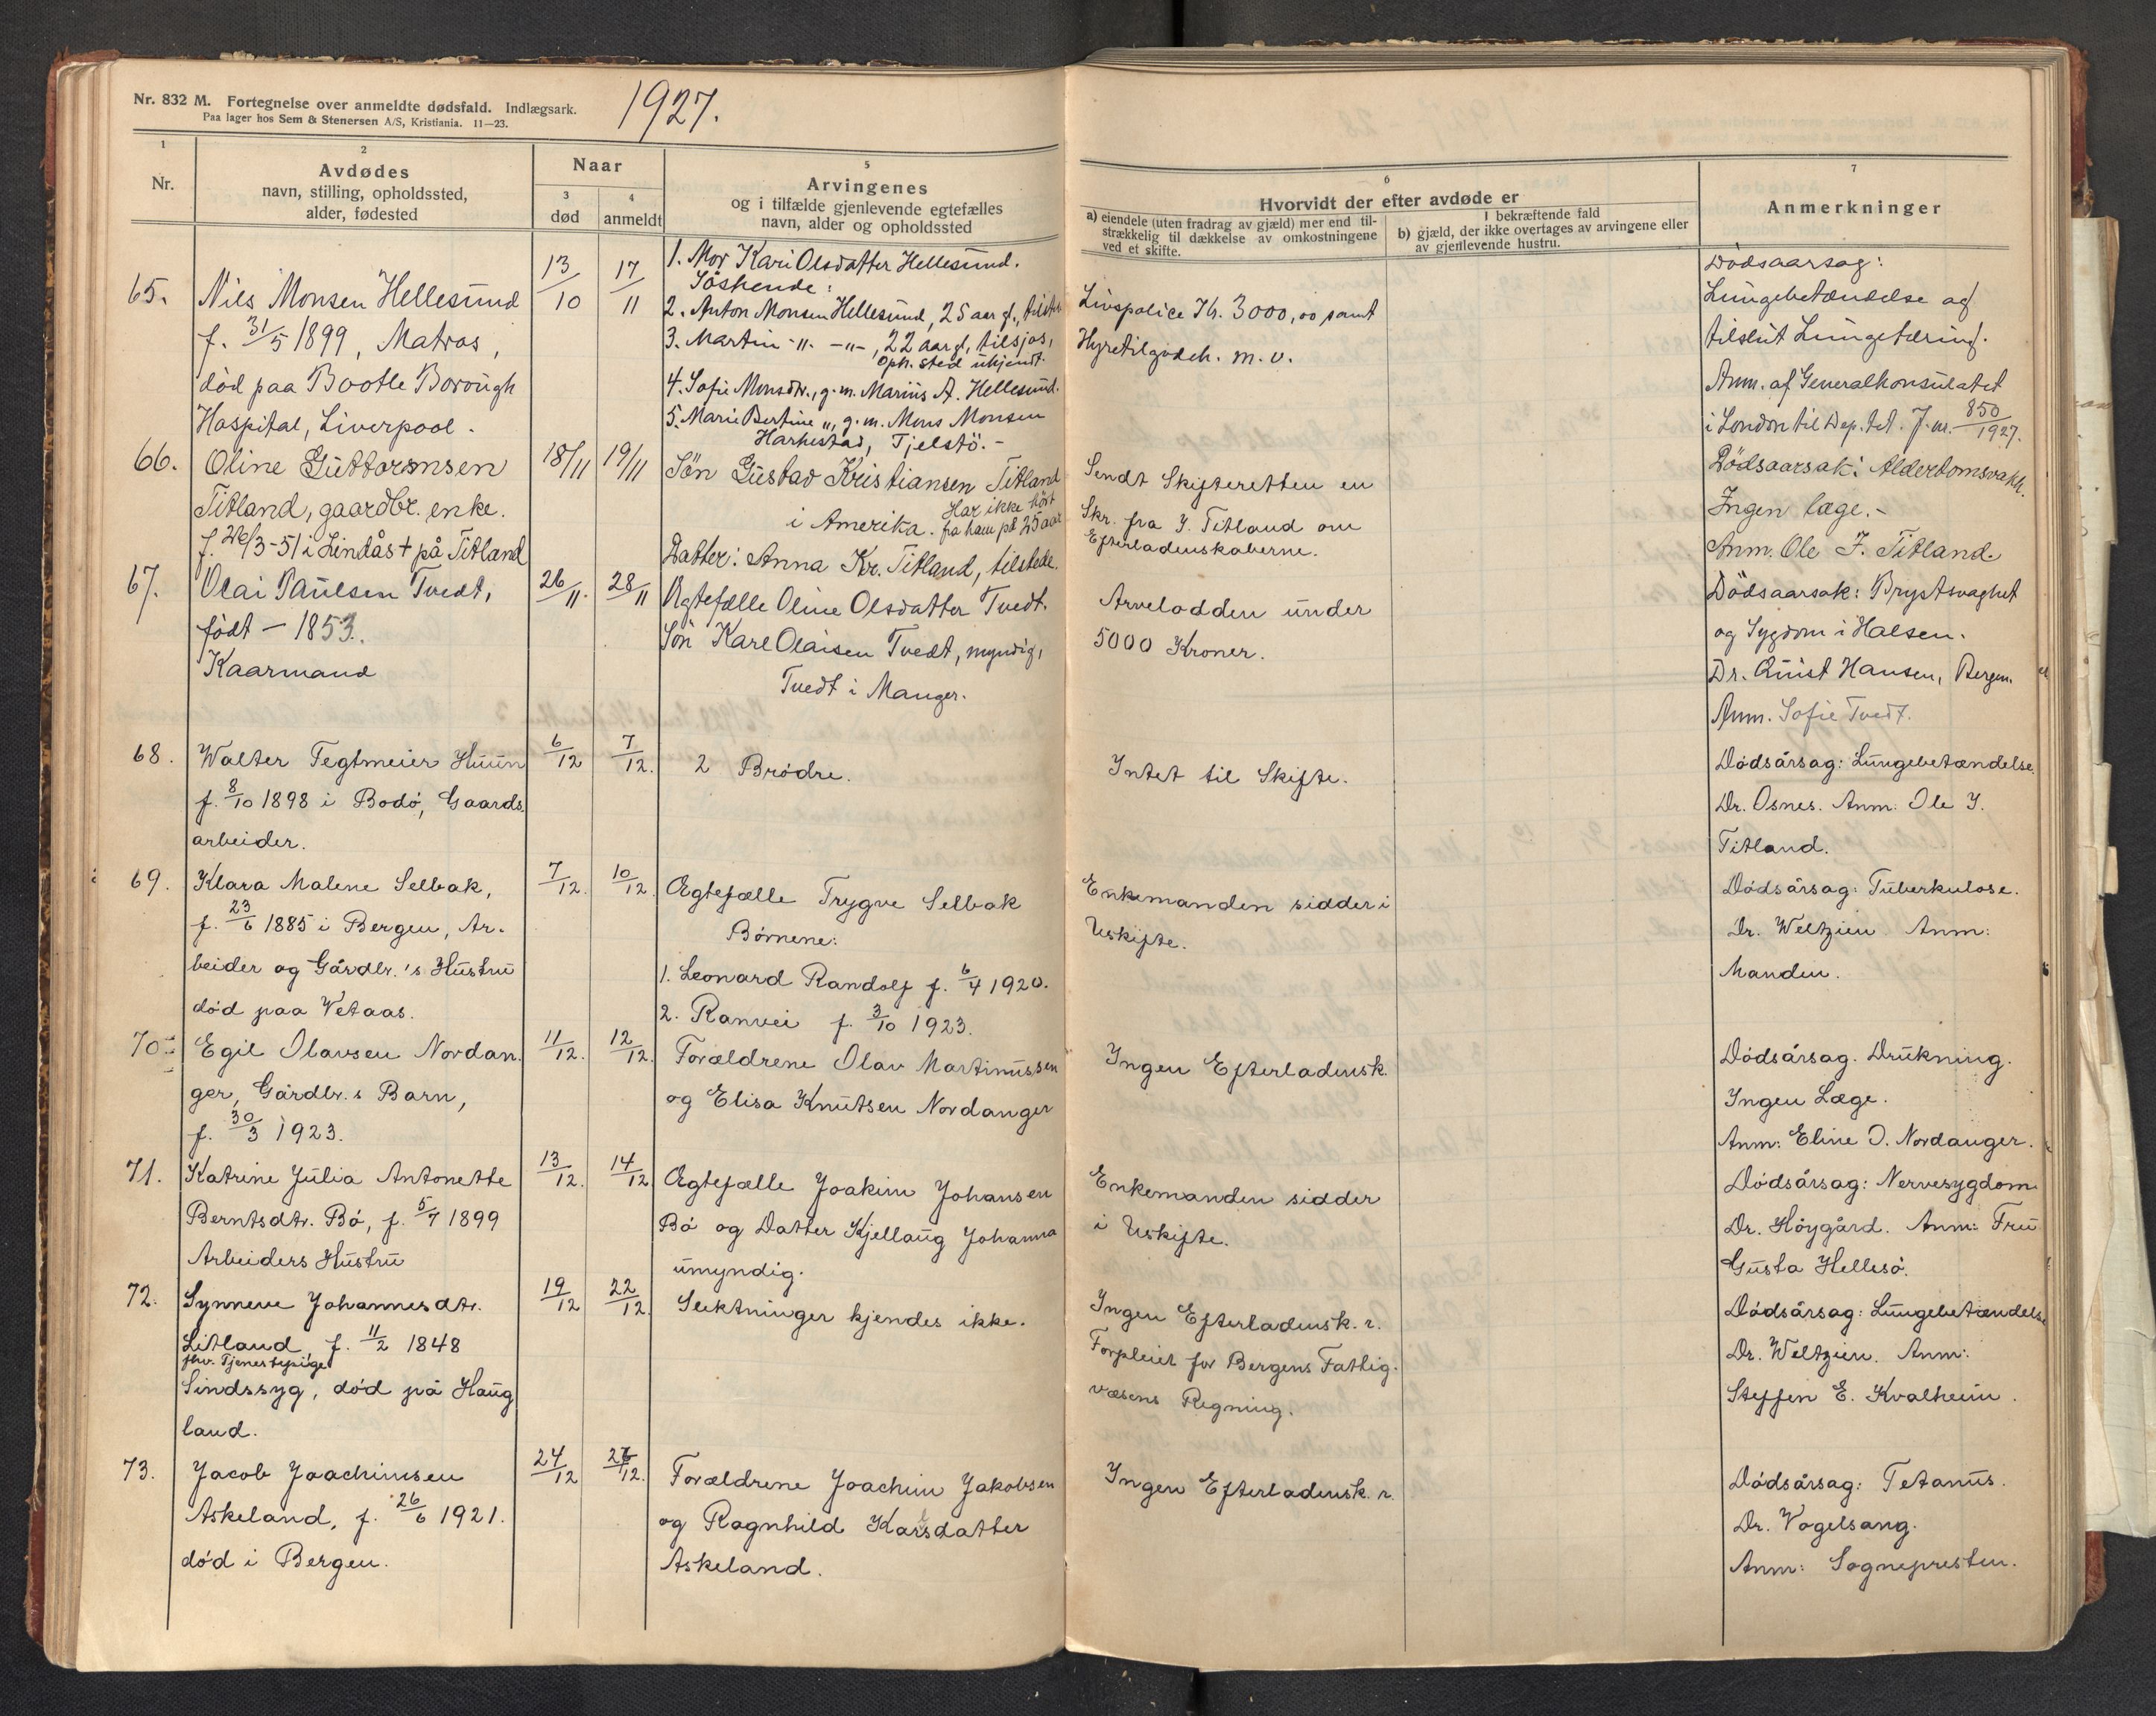 Nr. 832 M. Fortegnelse over anmeldte dødsfald. Indlægsark.
Paa lager hos Sem & Stenersen A/S, Kristiania. 11—23.
1927.
1
Nr.
2
Avdødes
navn, stilling, opholdssted,
alder, fødested
Naar
3
død
4
anmeldt
5
Arvingenes
og i tilfælde gjenlevende egtefælles
navn, alder og opholdssted
6
Hvorvidt der efter avdøde er
a) eiendele (uten fradrag av gjæld) mer end til-
strækkelig til dækkelse av omkostningene
ved et skifte.
I bekræftende fald
b) gjæld, der ikke overtages av arvingene eller
av gjenlevende hustru.
7
Anmerkninger
65.
Nils Monsen Hellesund
f. 31/5 1899, Matros,
död paa Bootle Borough
Hospital, Liverpool.
13/10
17/11
1. Mor Kari Olsdatter Hellesund.
Söskende:
2. Anton Monsen Hellesund, 25 aar gl.,
3. Martin -"- -"-, 22 aar gl, tilsjøs,
oph. sted ukjendt.
4. Sofie Monsdtr., g. m. Marius A. Hellesund.
5. Marie Bertine ", g. m. Mons Monsen
Harkestad, Tjelstö.-
Livspolice Kr. 3000,00 samt
Hyretilgodeh. m. v.
Dödsaarsag:
Lungebetændelse og
tilslut Lungetæring.
Anm. af Generalkonsulatet
i London til Dep.tet. J. nr. 850/1927.
66.
Oline Guttormsen
Titland, gaardbr. enke.
f. 26/3-51 i Lindås † på Titland
18/11
19/11
Sön Gustav Kristiansen Titland
i Amerika. Har ikke hört
fra ham på 25 aar
Datter: Anna Kr. Titland, tilstede.
Sendt Skifteretten en
Skr. fra J. Titland om
Efterladenskaberne.
Dödsaarsak: Alderdomsvakh.
Ingen læge.-
Anm. Ole J. Titland.
67.
Olai Paulsen Tvedt,
födt - 1853.
Kaarmand
26/11.
28/11
Ægtefælle Oline Olsdatter Tvedt.
Sön Karl Olaisen Tvedt, myndig,
Tvedt i Manger.
Arvelodden under
5000 Kroner.
Dödsaarsak: Brystsvaghet
og Sygdom i Halsen.
Dr. Quist Hansen, Bergen.
Anm. Sofie Tvedt.
68.
Walter Tegtmeier Huun
f. 8/10 1898 i Bodö, Gaards-
arbeider.
6/12
7/12.
2 Brödre.
Intet til Skifte.
Dödsårsag: Lungebetændelse.
Dr. Osnes. Anm: Ole J.
Titland.
69.
Klara Malene Selbak,
f. 23/6 1885 i Bergen, Ar-
beider og Gårdbr.'s Hustru
död paa Vetaas.
7/12.
10/12.
Ægtefælle Trygve Selbak
Börnene:
1. Leonard Randolf f. 6/4 1920.
2. Ranvei f. 3/10 1923.
Enkemanden sidder i
Uskifte.
Dödsårsag: Tuberkulose.
Dr. Weltzien Anm:
Manden.
70
Egil Olavsen Nordan-
ger, Gårdbr.s Barn,
f. 30/3 1923.
11/12.
12/12.
Forældrene Olav Martinussen
og Elisa Knutsen Nordanger
Ingen Efterladensk.
Dödsårsag. Drukning.
Ingen Læge.
Anm: Eline O. Nordanger.
71.
Katrine Julia Antonette
Berntsdtr. Bö, f. 5/7 1899
Arbeiders Hustru
13/12.
14/12
Ægtefælle Joakim Johansen
Bö og Datter Kjellaug Johanna
umyndig.
Enkemanden sidder
i Uskifte.
Dödsårsag: Nervesygdom.
Dr. Höygård. Anm: Fru
Gusta Hellesö.
72.
Synneve Johannesdtr.
Litland, f. 11/2 1848
fhv. Tjenestepige
Sindssyg, död på Haug
land.
19/12
22/12.
Slektninger kjendes ikke.
Ingen Efterladensk. r.
Forpleiet for Bergens Fattig-
væsens Regning.
Dödsårsag: Lungebetændelse
Dr. Weltzien. Anm:
Steffen E. Kvalheim.
73.
Jacob Joachimsen
Askeland, f. 26/6 1921.
död i Bergen.
24/12
/12.
Forældrene Joachim Jakobsen
og Ragnhild Karsdatter
Askeland.
Ingen Efterladensk. r.
Dödsårsag: Tetanus.
Dr. Vogelsang.
Anm: Sognepresten.